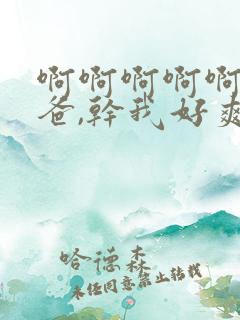 啊啊啊啊啊
爸,幹我好爽
哈德森
未经同意禁止转载